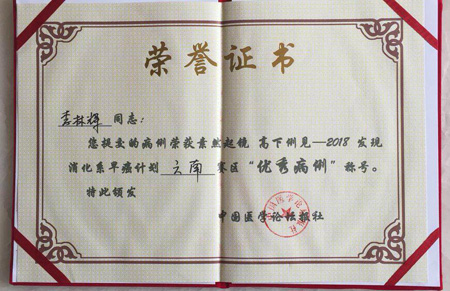 荣誉证书
李林辉 同志：
您提交的病例荣获素然起镜 高下例见—2018 发现
消化系早癌计划 云南 赛区“优秀病例”称号。
特此颁发
中国医学论坛报社